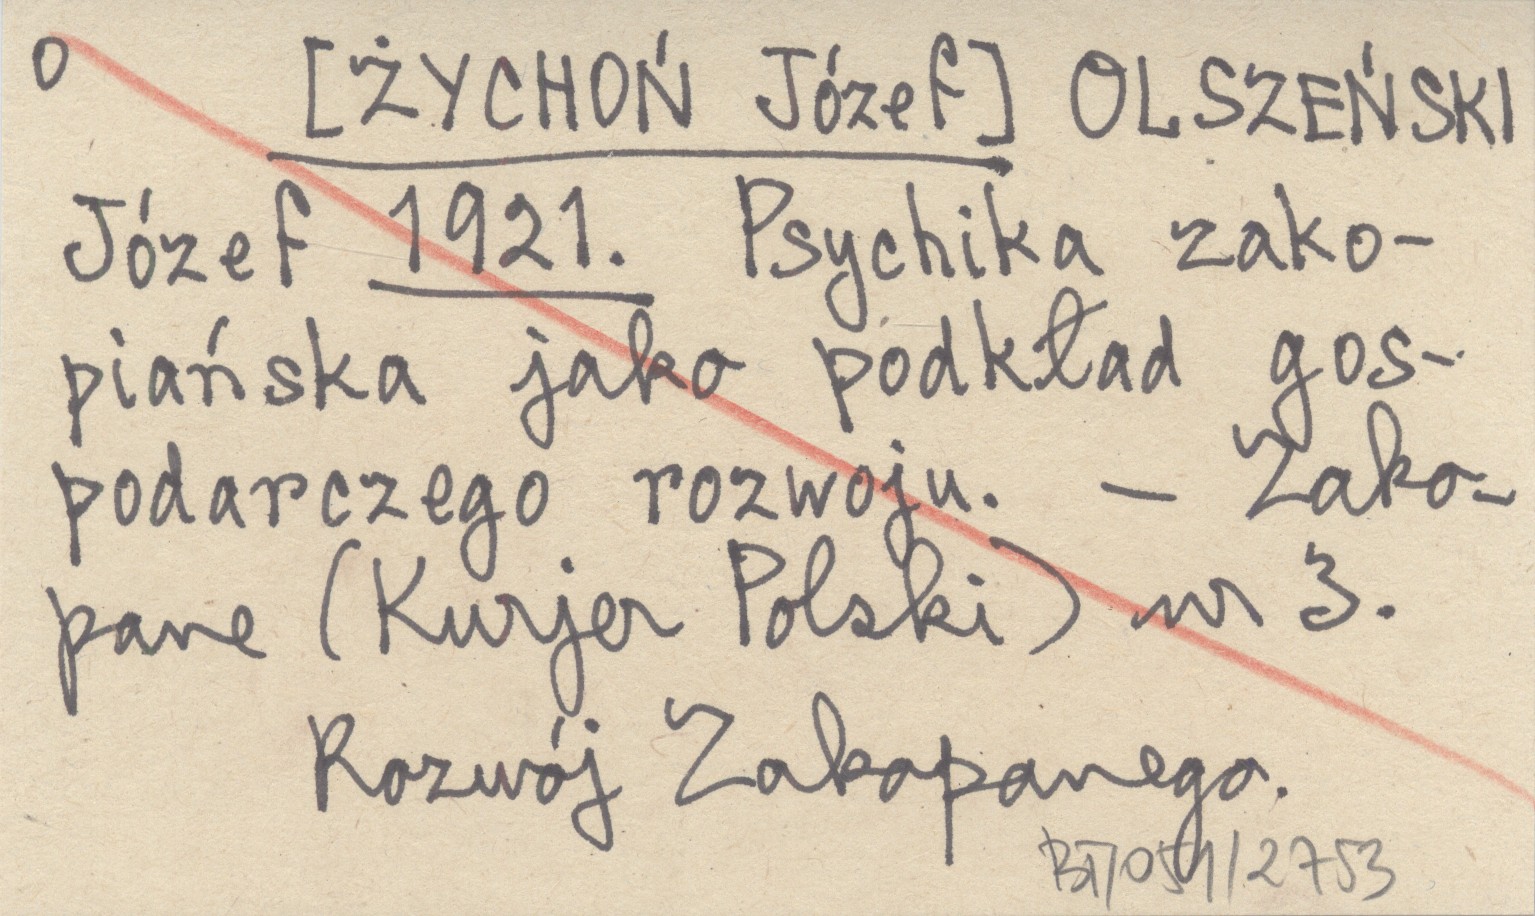 o [ŻYCHOŃ Józef] OLSZEŃSKI
Józef 1921. Psychika zako-
piańska jako podkład gos-
podarczego rozwoju. – Zako-
pane (Kurjer Polski) nr 3.
Rozwój Zakopanego.
BT/051/2753